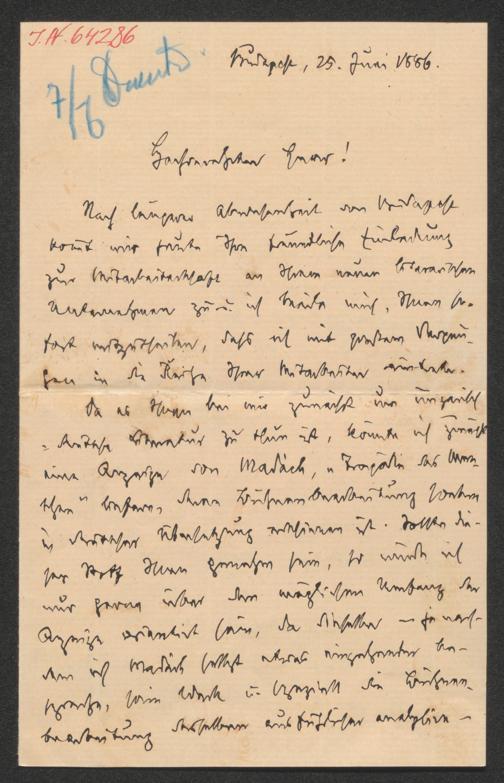 J.N. 64286
7/6
Budapest, 25. Juni 1886.
Hochverehrter Herr!
Nach längerer Abwesenheit von Budapest
kommt mir heute Ihre freundliche Einladung
zur Mitarbeiterschaft an Ihrem neuen literarischen
Unternehmen zu u. ich beeile mich, Ihnen so-
fort mitzutheilen, daß ich mit großem Vergnü-
gen in die Reihe Ihrer Mitarbeiter eintrete.
Da es Ihnen bei mir zunächst um ungarisch
-deutsche Literatur zu thun ist, könnte ich zunächst
eine Anzeige von Madách, „Tragödie des Men-
schen" liefern, deren Bühnenbearbeitung soeben
in deutscher Übersetzung erschienen ist. Sollte die-
ser Stoff Ihnen genehm sein, so würde ich
nur gerne über den möglichen Umfang der
Anzeige orientirt sein, da dieselbe – je nach-
dem ich Madách selbst etwas eingehender be-
spreche, sein Werk u. speziell die Bühnen-
bearbeitung desselben ausführlicher analysire –